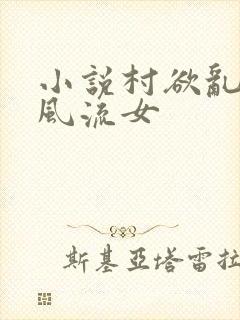 小説村欲亂
風流女
斯基亞塔雷拉